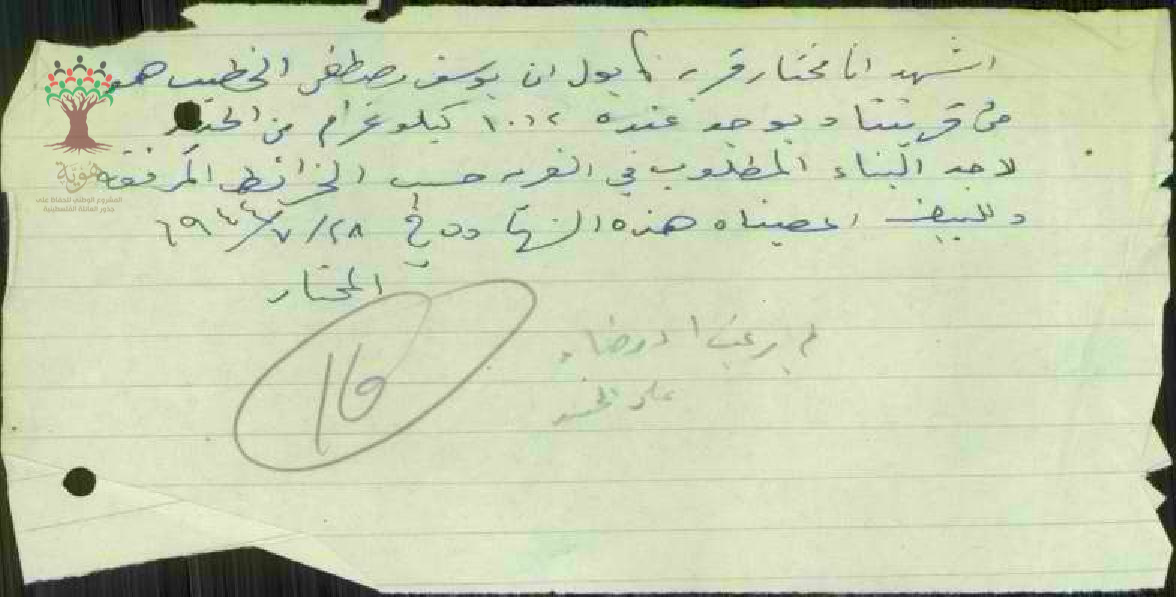 اشهد انا مختار قرية كابول ان يوسف مصطفى الخطيب هو
من قريتنا ويوجد عنده ١٠١٢ كيلو غرام من الحديد
لاجل البناء المطلوب في القريه حسب الخرائط المرفقه
وللبيان اعطيناه هذه الشهادة في ٢٨/٧/١٩٤٤
المختار
لم يرغب
على
16
هوية
المشروع الوطني للحفاظ على
جذور العائلة الفلسطينية